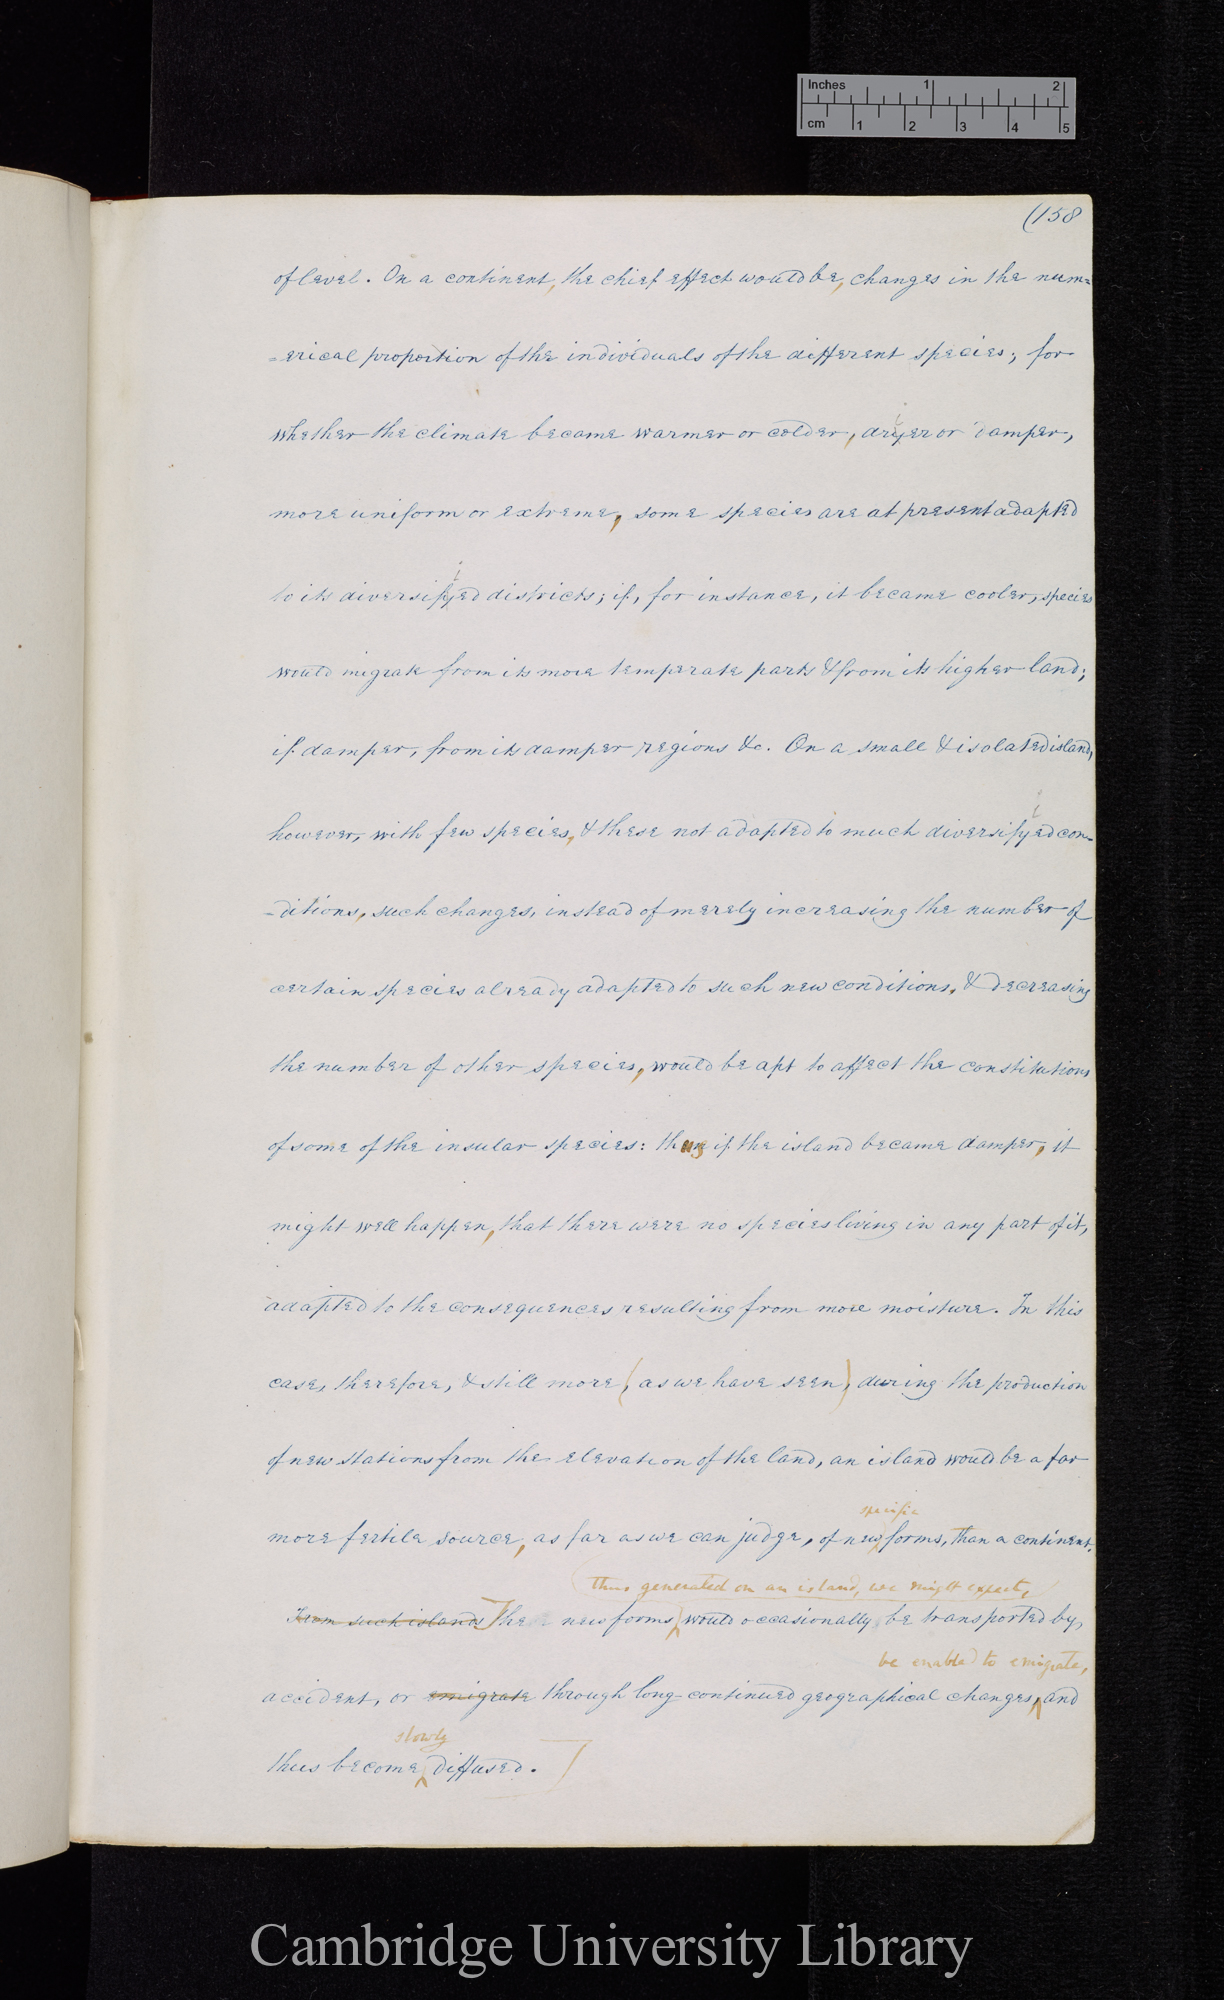 Inches 1 2
cm 1 2 3 4 5
(158
of level. On a continent, the chief effect would be, changes in the num=
=erical proportion of the individuals of the different species; for
whether the climate became warmer or colder, drier or damper,
more uniform or extreme, some species are at present adapted
to its diversified districts; if, for instance, it became cooler, species
would migrate from its more temperate parts & from its higher land;
if damper, from its damper regions &c. On a small & isolated island,
however, with few species, & these not adapted to much diversified con-
-ditions, such changes, instead of merely increasing the number of
certain species already adapted to such new conditions, & decreasing
the number of other species, would be apt to affect the constitutions
of some of the insular species: thus if the island became damper, it
might well happen, that there were no species living in any part of it,
adapted to the consequences resulting from more moisture. In this
case, therefore, & still more (as we have seen) during the production
of new stations from the elevation of the land, an island would be a far
specific
more fertile source, as far as we can judge, of new forms, than a continent.
thus generated on an island, we might expect,
From such islands The new forms would occasionally be transported by,
be enabled to emigrate,
accident, or emigrate through long-continued geographical changes, and
slowly
thus become diffused.
Cambridge University Library